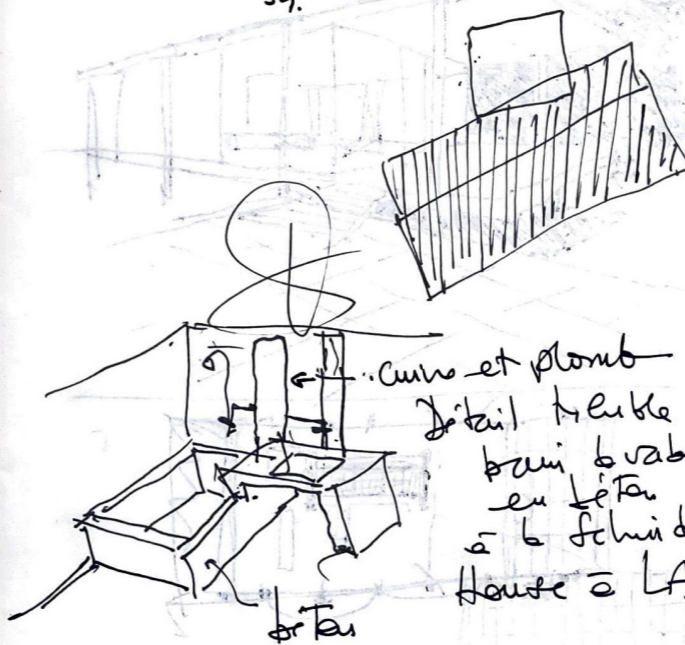 cuivre et plomb
Détail meuble
bain lavab
en béton
à la Schind
House à LA.
béton